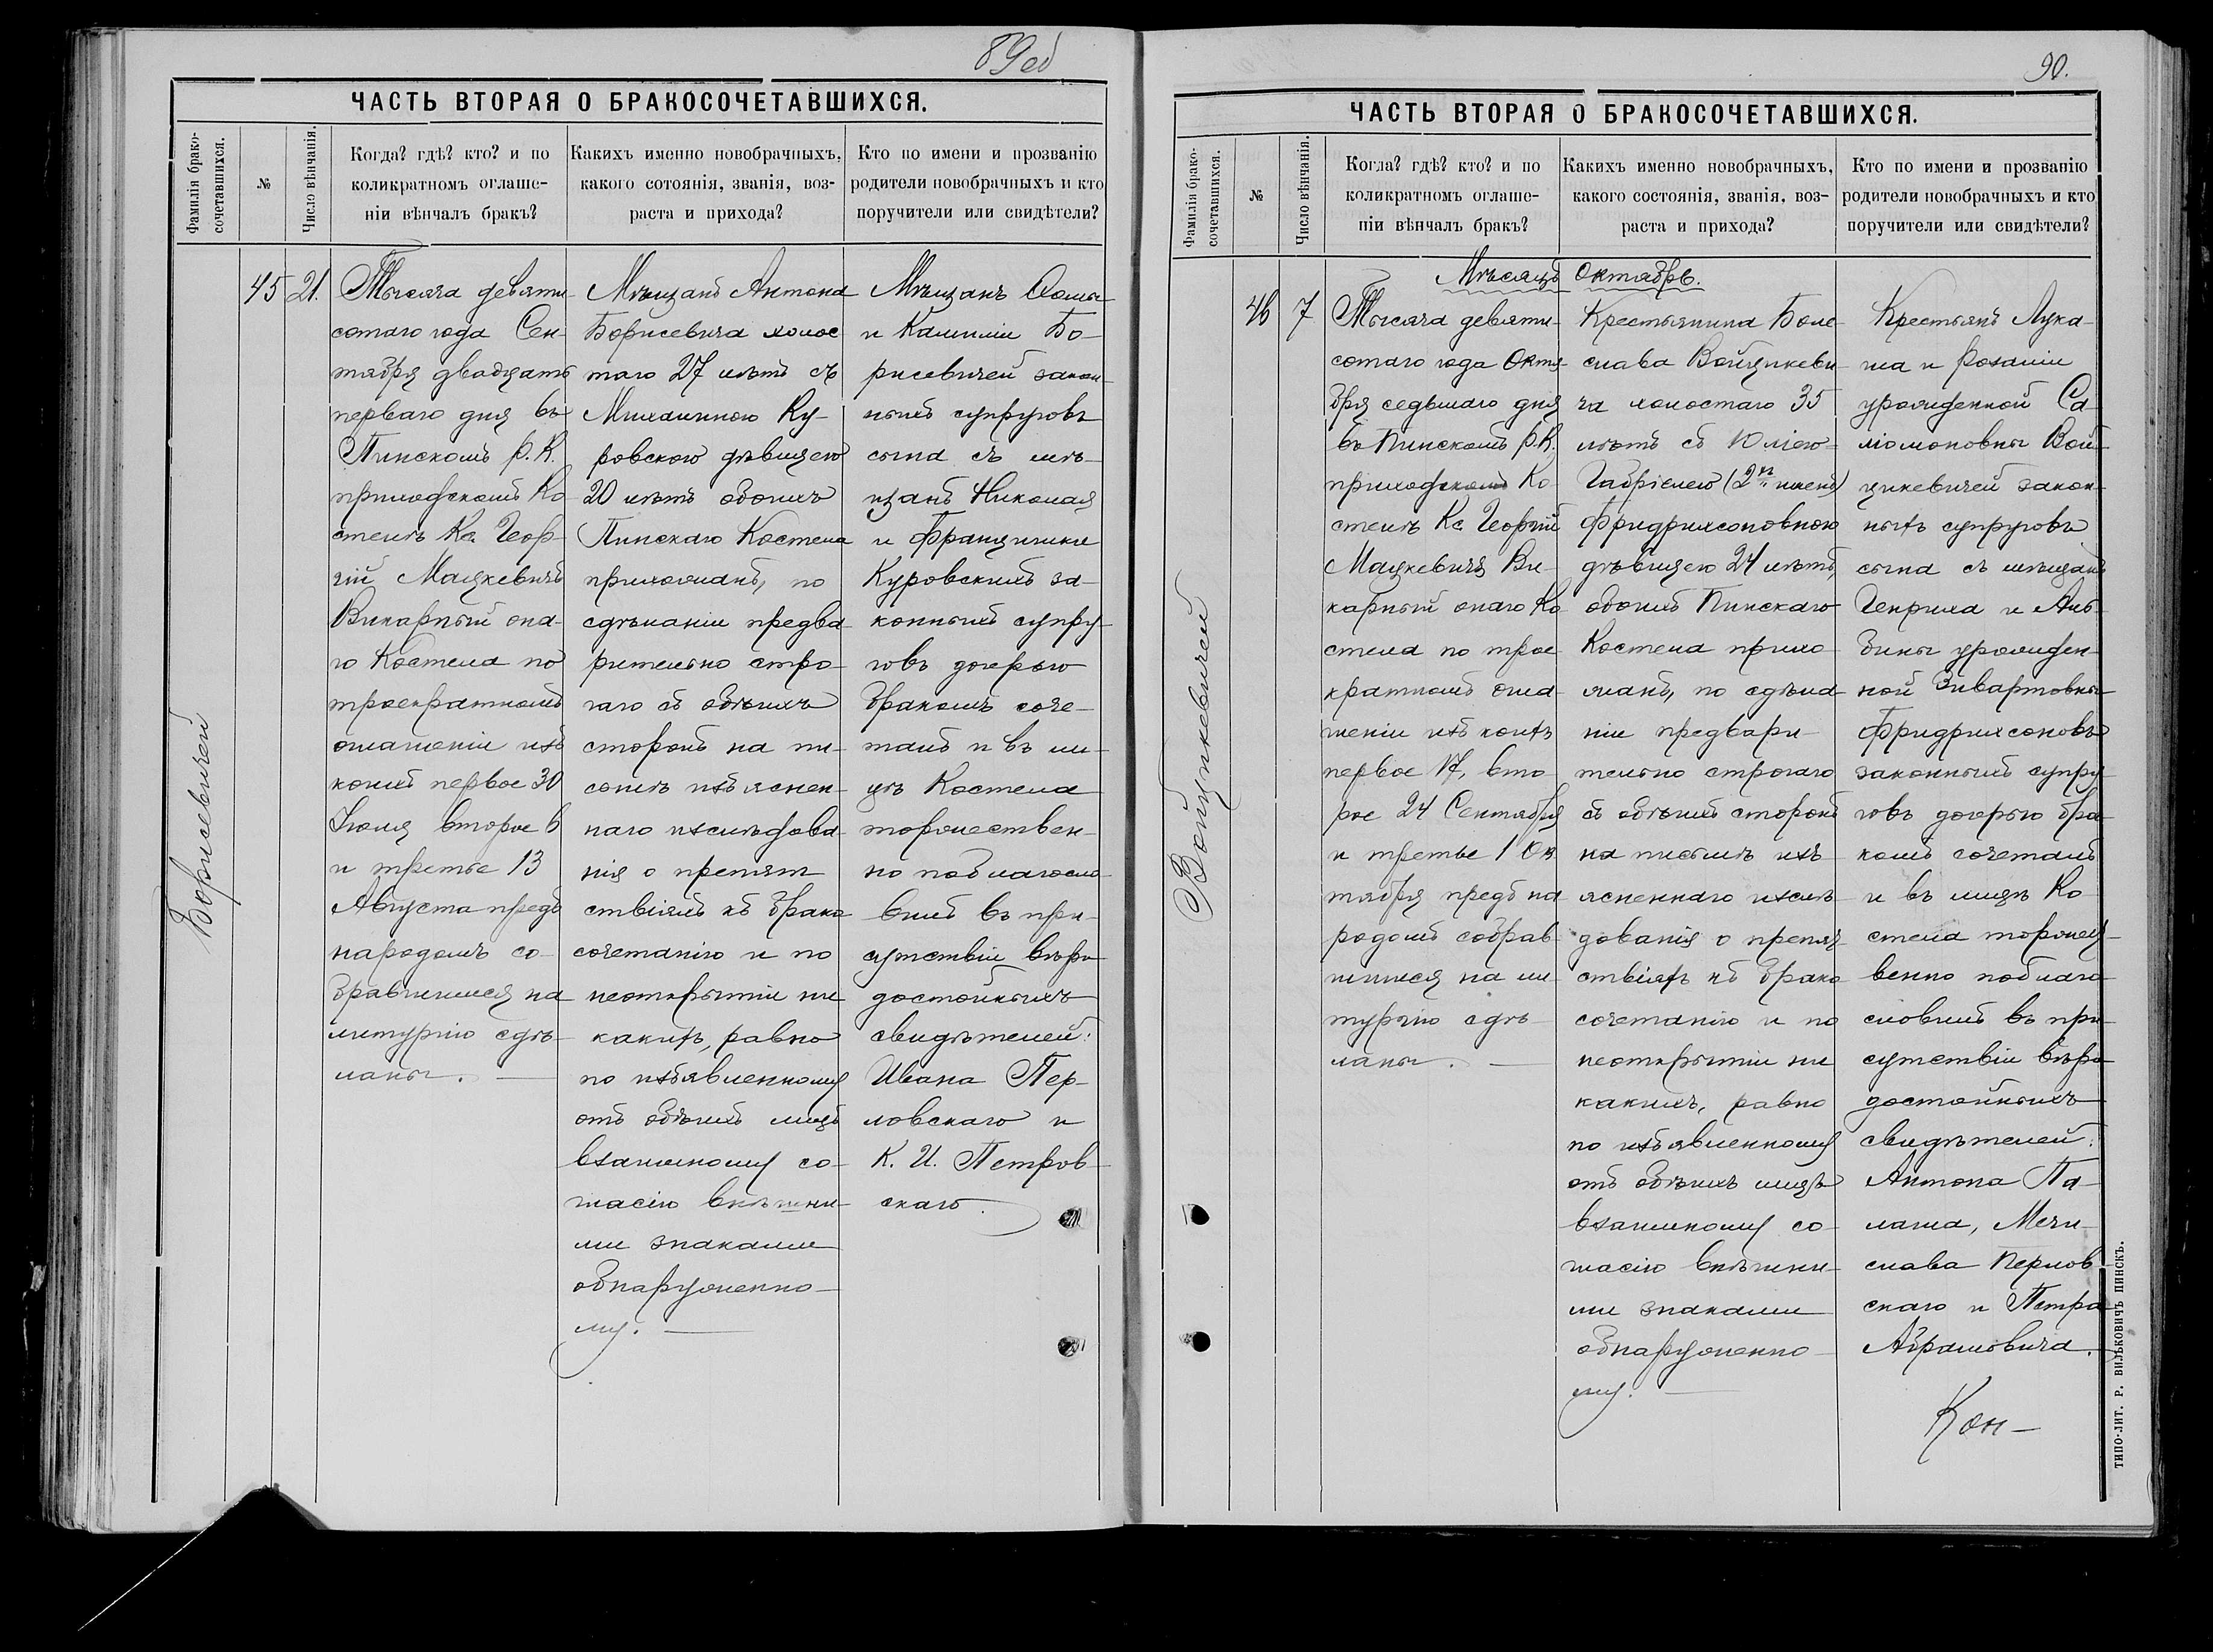 89об
ЧАСТЬ ВТОРАЯ О БРАКОСОЧЕТАВШИХСЯ.
Фамилія брако-
сочетавшихся.
№
Число вѣнчанія.
Когда? гдѣ? кто? и по
коликратномъ оглаше-
ніи вѣнчалъ бракъ?
Какихъ именно новобрачныхъ,
какого сотоянія, званія, воз-
раста и прихода?
Кто по имени и прозванію
родители новобрачныхъ и кто
поручители или свидѣтели?
Борисевичей
45
21.
Тысяча девяти-
сотаго года Сен-
тября двадцать
перваго дня въ
Пинскомъ Р. К.
приходскомъ Ко-
стелѣ Кс. Геор-
гій Мацкевичъ
Викарный она-
го Костела по
троекратномъ
оглашеніи изъ
коихъ первое 30
Іюля второе 6
и третье 13
Августа предъ
народомъ со-
бравшимся на
литургію сдѣ-
ланы. —
Мѣщанъ Антона
Борисевича холос
таго 27 лѣтъ съ
Михалиною Ку-
ровскою дѣвицею
20 лѣтъ обоихъ
Пинскаго Костела
прихожанъ, по
сдѣланіи предва-
рительно стро-
гаго съ обѣихъ
сторонъ на пи-
сьмѣ изъяснен-
наго изслѣдова-
нія о препят-
ствіяхъ къ брако
сочетанію и по
неоткрытіи ни
какихъ, равно
по изъявленному
отъ обѣихъ лицъ
взаимному со-
гласію внѣшни-
ми знаками
обнаруженно-
му. —
Мѣщанъ
и Камиліи Бо-
рисевичей закон-
ныхъ супруговъ
сына съ мѣ-
щанъ Николая
и Францишки
Куровскихъ за-
конныхъ супру-
говъ дочерью
бракомъ соче-
талъ и въ ли-
цѣ Костела
торжествен-
но поблагосло-
вилъ въ при-
сутствіи вѣро-
достойныхъ
свидѣтелей:
Ивана Пер-
ловскаго и
К. И. Петров-
скаго.
90.
ЧАСТЬ ВТОРАЯ О БРАКОСОЧЕТАВШИХСЯ.
Фамилія брако-
сочетавшихся.
№
Число вѣнчанія.
Когда? гдѣ? кто? и по
коликратномъ оглаше-
ніи вѣнчалъ бракъ?
Какихъ именно новобрачныхъ,
какого состоянія, званія, воз-
раста и прихода?
Кто по имени и прозванію
родители новобрачныхъ и кто
поручители или свидѣтели?
Войцикевичей
Мѣсяцъ Октябрь.
46
7
Тысяча девяти-
сотаго года Октя-
бря седьмаго дня
въ Пинскомъ Р. К.
приходскомъ Ко-
стелѣ Кс. Георгій
Мацкевичъ Ви-
карный онаго Ко-
стела по трое-
кратномъ огла-
шеніи изъ коихъ
первое 17, вто-
рое 24 Сентября
и третье 1 Ок-
тября предъ на-
родомъ собрав-
шимся на ли-
тургію сдѣ-
ланы. —
Крестьянина Боле-
слава Войцикеви-
ча холостаго 35
лѣтъ съ Юліею-
Габріелею (2хъ именъ)
Фридрихсоновною
дѣвицею 24 лѣтъ,
обоихъ Пинскаго
Костела прихо-
жанъ, по сдѣла-
ніи предвари-
тельно строгаго
съ обѣихъ сторонъ
на письмѣ изъ-
ясненнаго изслѣ-
дованія о препят-
ствіяхъ къ брако
сочетанію и по
неоткрытіи ни
какихъ, равно
по изъявленному
отъ обѣихъ лицъ
взаимному со-
гласію внѣшни-
ми знаками
обнаруженно-
му. —
Крестьянъ Лука-
ша и Розаліи
урожденной Са-
ліомоновны Вой-
цикевичей закон-
ныхъ супруговъ
сына съ мѣщанъ
Генриха и Аль-
бины урожден-
ной Эйвартовны
Фридрихсоновъ
законныхъ супру-
говъ дочерью бра-
комъ сочеталъ
и въ лицѣ Ко-
стела торжест-
венно поблаго-
словилъ въ при-
сутствіи вѣро-
достойныхъ
свидѣтелей:
Антона Па-
лаша, Мечи-
слава Перлов-
скаго и Петра
Абрамовича.
Кон-
ТИПО-ЛИТ. Р. ВИЛЬКОВИЧЪ ПИНСКЪ.